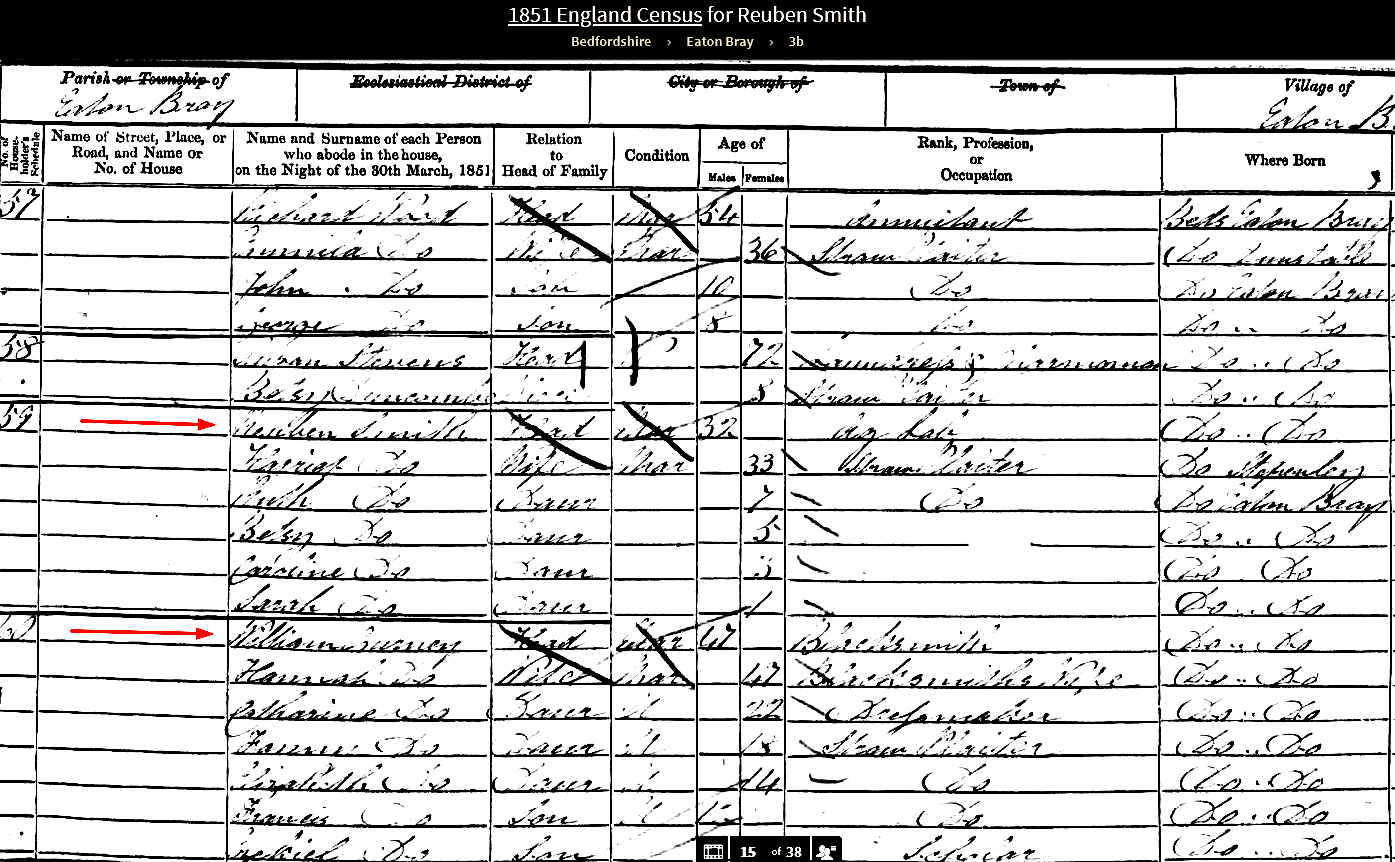 1851 England Census for Reuben Smith
Bedfordshire › Eaton Bray › 3b
Parish or Township of
Eaton Bray
Ecclesiastical District of
City or Borough of
Town of
Village of
Eaton B
No. of House-holder's Schedule
Name of Street, Place, or Road, and Name or No. of House
Name and Surname of each Person who abode in the house, on the Night of the 30th March, 1851
Relation to Head of Family
Condition
Age of
Males Females
Rank, Profession, or Occupation
Where Born
57 Richard Head Mar 54 Annuitant Beds Eaton Bray
Do Wife Mar 36 Straw Plaiter Do Dunstable
John Do Son 10 Do Do Eaton Bray
George Do Son 8 Do Do .. Do
58 Susan Stevens Head 72 Laundress & Do .. Do
Betsy 8 Straw Plaiter Do .. Do
59 Reuben Smith Head Mar 32 Ag Lab Do .. Do
Harriat Do Wife Mar 33 Straw Plaiter Do
Ruth Do Daur 7 Do Do Eaton Bray
Betsy Do Daur 5 Do .. Do
Caroline Do Daur 3 Do .. Do
Sarah Do Daur 1 Do .. Do
60 William Gurney Head Mar 47 Blacksmith Do .. Do
Hannah Do Wife Mar 47 Blacksmiths Wife Do .. Do
Catharine Do Daur U 22 Dressmaker Do .. Do
Do Daur U 18 Straw Plaiter Do .. Do
Elizabeth Do Daur U 14 Do Do .. Do
Francis Do Son U Do Do .. Do
Ezekiel Do Son Scholar Do .. Do
15 of 38